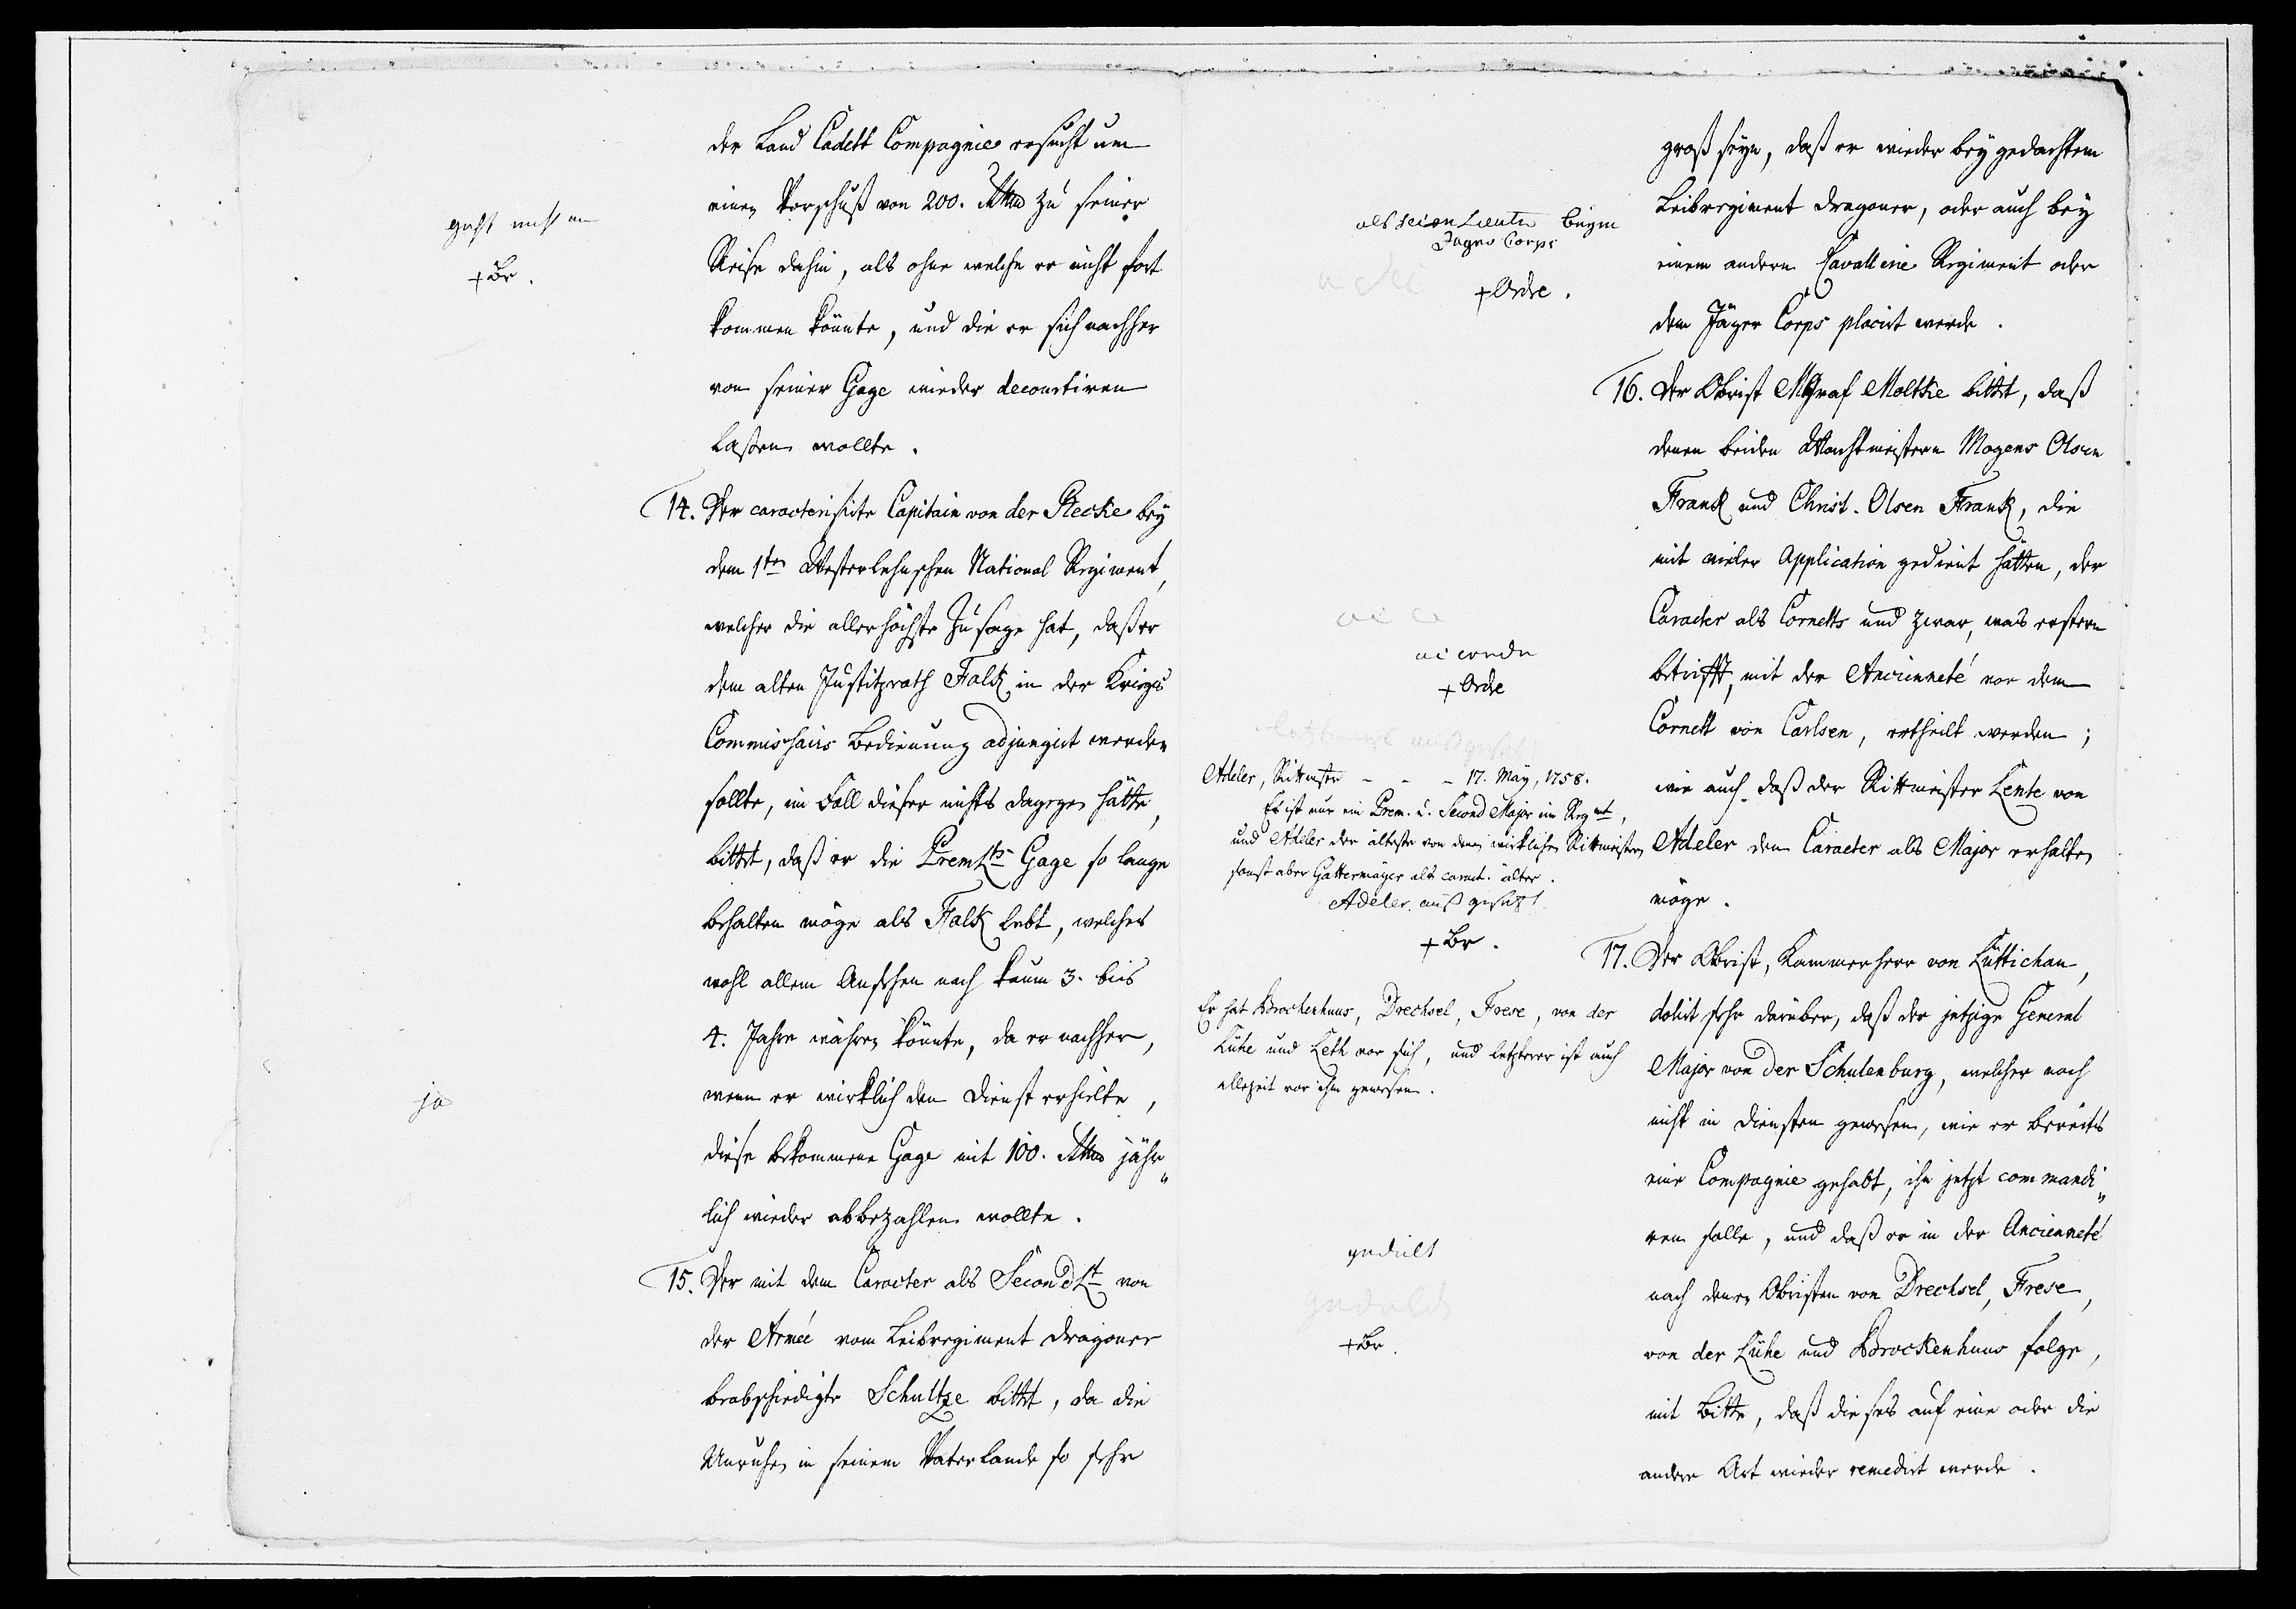 der Land Cadett Compagnie ersucht um
einen Vorschuß von 200. Rthlr zu seiner
Reise dahin, als ohne welche er nicht fort
kommen könnte, und die er sich nachher
von seiner Gage wieder decourtiren
laßen wollte.
geht nicht an
+ Br.
14. Der caracterisirte Capitain von der Recke bey
dem 1ten Westerlehnschen National Regiment,
welcher die allerhöchste Zusage hat, daß er
dem alten Justitzrath Falck in der Kriegs
Commissairs Bedienung adjungirt werden
sollte, im Fall dieser nichts dagegen hätte,
bittet, daß er die PremLts Gage so lange
behalten möge als Falck lebt, welches
wohl allem Ansehen nach kaum 3. bis
4. Jahre währen könnte, da er nachher,
wenn er wirklich den Dienst erhielte,
diese bekommene Gage mit 100. Rthlr jähr„
lich wieder abbezahlen wollte.
ja
15. Der mit dem Caracter als SecondLt von
der Armée vom Leibregiment Dragoner
beabschiedigte Schultze bittet, da die
Unruhen in seinem Vaterlande so sehr
groß seyn, daß er wieder bey gedachtem
Leibregiment Dragoner, oder auch bey
einem andern Cavallerie Regiment oder
dem Jäger Corps placirt werde.
als Secon Lieutn beym
Jager Corps
+ Ordre.
16. Der Obrist Graf Moltke bittet, daß
denen beiden Wachtmeistern Mogens Olsen
Franck und Christ. Olsen Franck, die
mit vieler Application gedient hätten, der
Caracter als Cornetts und zwar, was erstern
betrifft, mit der Ancienneté vor dem
Cornett von Carlsen, ertheilt werden;
wie auch daß der Rittmeister Lente von
Adeler den Caracter als Major erhalten
möge.
+ Ordre
Adeler, Rittmstr - - - 17. May, 1758.
Es ist nur ein Prem. u. Second Major im Regmt,
und Adeler der älteste von denen wirklichen Rittmeistern
sonst aber Gattermayer als caract. älter.
Adeler aus gesetzt
+ Br.
17. Der Obrist, Kammerherr von Lüttichau,
dolirt sehr darüber, daß der jetzige General
Major von der Schulenburg, welcher noch
nicht in Diensten gewesen, wie er bereits
eine Compagnie gehabt, ihn jetzt commandi„
ren solle, und daß er in der Ancienneté
nach denen Obristen von Drechsel, Frese,
von der Lühe und Brockenhuus folge,
mit Bitte, daß dieses auf eine oder die
andere Art wieder remedirt werde.
Er hat Brockenhuus, Drechsel, Frese, von der
Lühe und Leth vor sich, und letzterer ist auch
allezeit vor ihm gewesen.
gedult
gedult
+ Br.